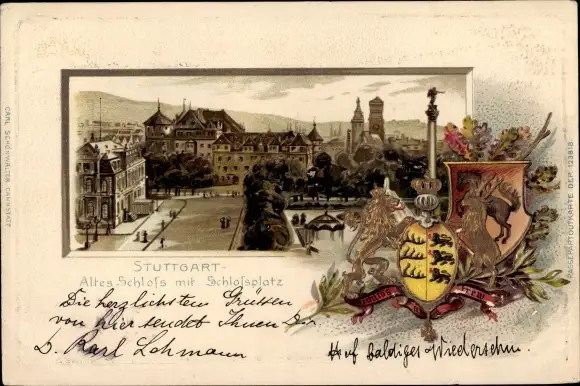 CARL SCHÖNWALTER, CANNSTATT
STUTTGART-
Altes Schloſs mit Schloſsplatz
PASSEPARTOUTKARTE DEP. 123818
Die herzlichsten Grüssen
von hier sendet Ihnen
D. Karl Lohmann
Auf baldiges Wiedersehn.